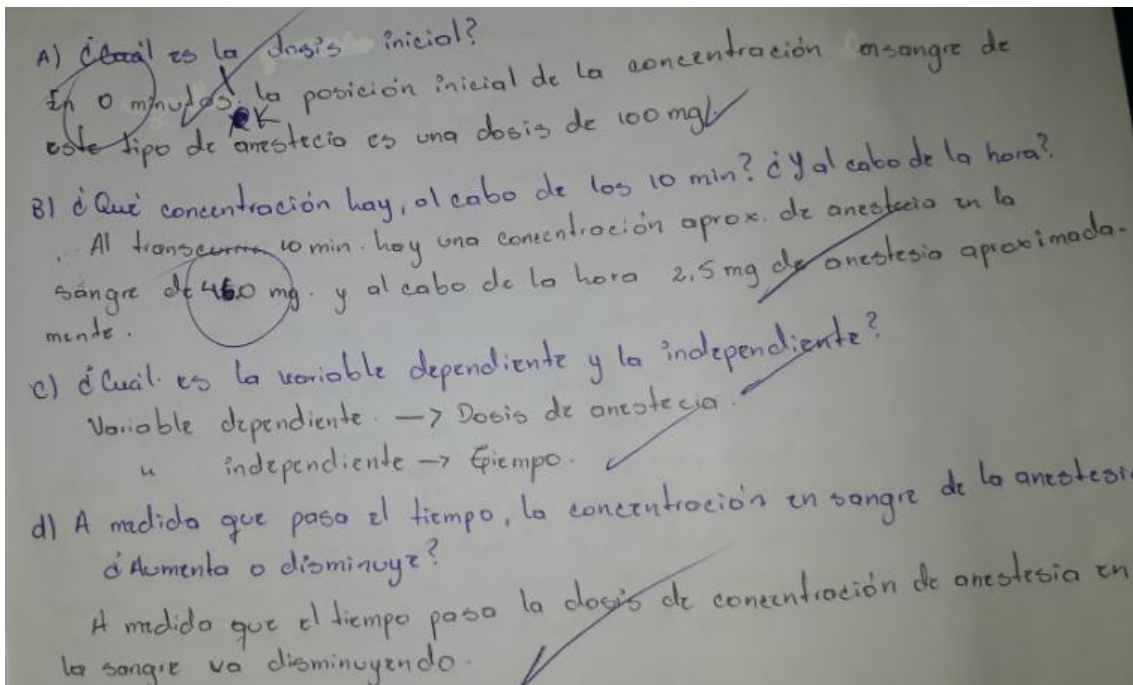 A) ¿Cuál es la dosis inicial?
En 0 minutos. la posición inicial de la concentración ensangre de
este tipo de anestecia es una dosis de 100 mg
B) ¿Qué concentración hay, al cabo de los 10 min? ¿Y al cabo de la hora?
. Al transcurrir 10 min. hay una concentración aprox. de anestecia en la
sangre de 460 mg. y al cabo de la hora 2,5 mg de anestesia aproximada-
mente.
c) ¿Cuál. es la variable dependiente y la independiente?
Variable dependiente. —> Dosis de anestecia.
" independiente —> Tiempo.
d) A medida que pasa el tiempo, la concentración en sangre de la anestesi
¿Aumenta o disminuye?
A medida que el tiempo pasa la dosis de concentración de anestesia en
la sangre va disminuyendo.